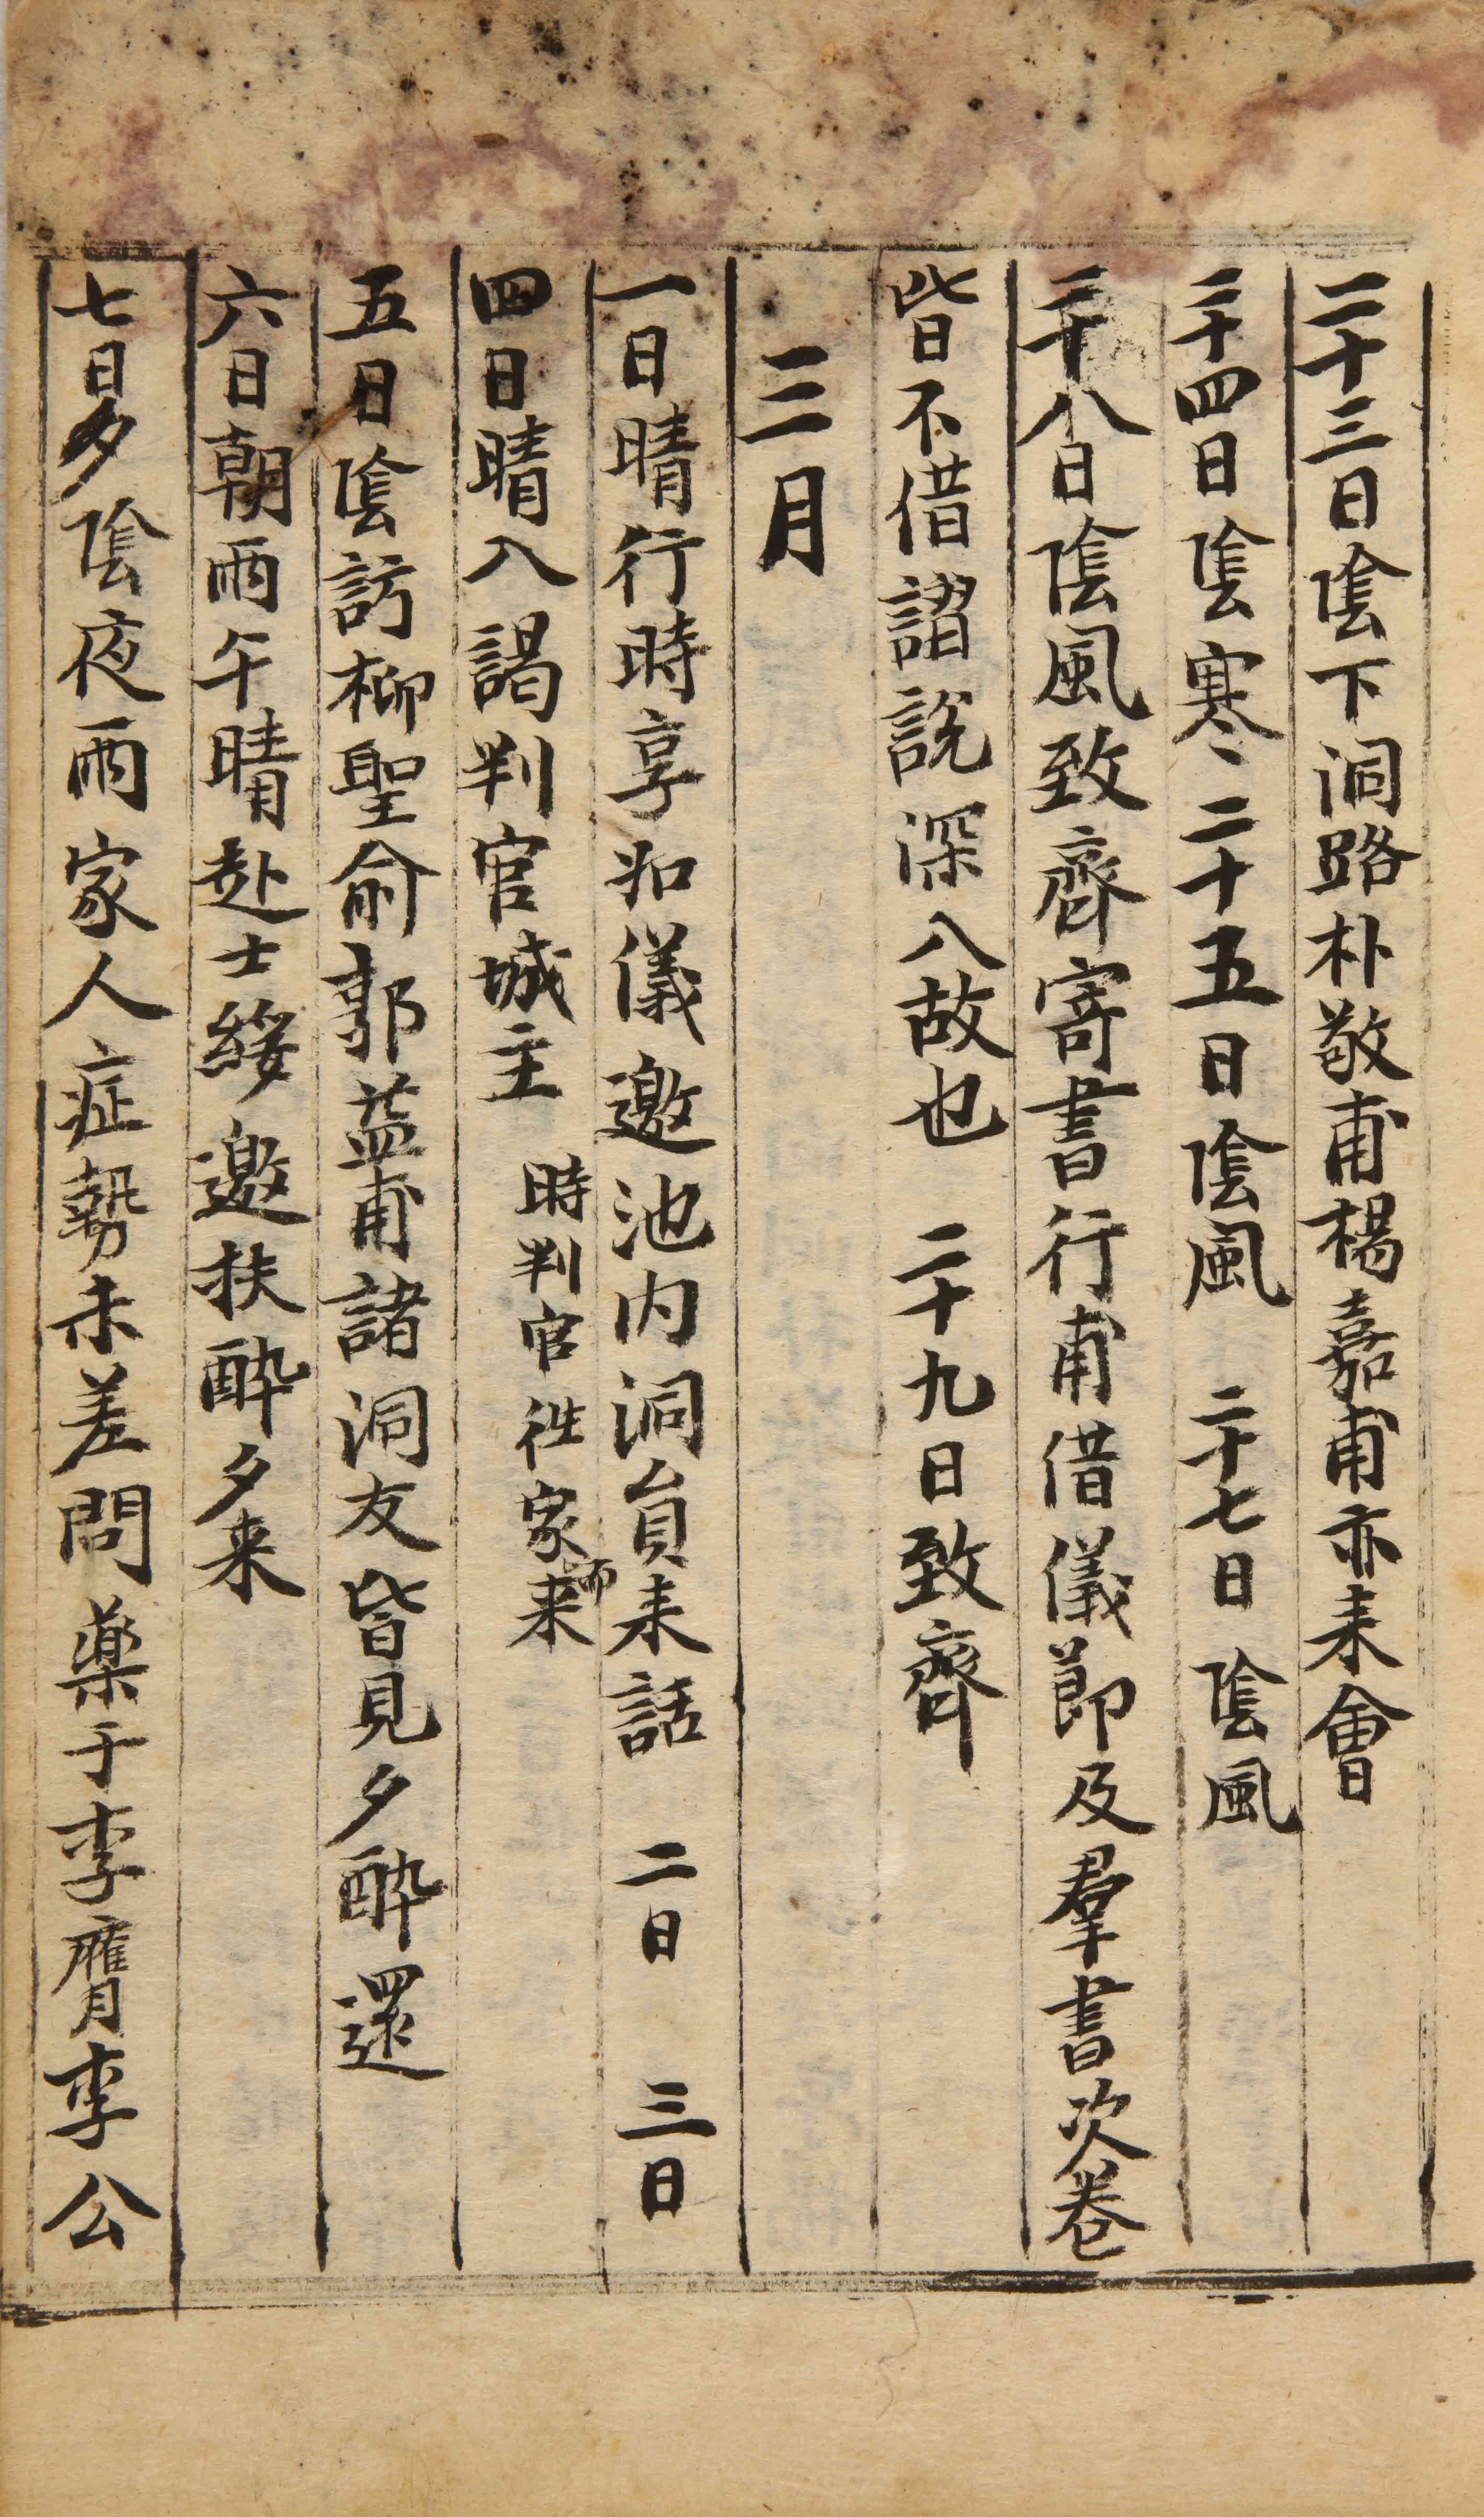 二十三日陰下洞路朴敬甫楊嘉甫亦来會
二十四日陰寒二十五日陰風 二十七日陰風
二十八日陰風致齊寄書行甫借儀節及羣書次卷
皆不借謵說深入故也 二十九日致齊
三月
一日晴行時享於儀邀池内洞員来話 二日 三日
四日晴入謁判官城主 時判官徃家而来
五日陰訪柳聖俞郭益甫諸洞友皆見夕醉還
六日朝雨午晴赴士綏邀扶醉夕来
七日夕陰夜雨家人症勢未差問藥于李膺李公